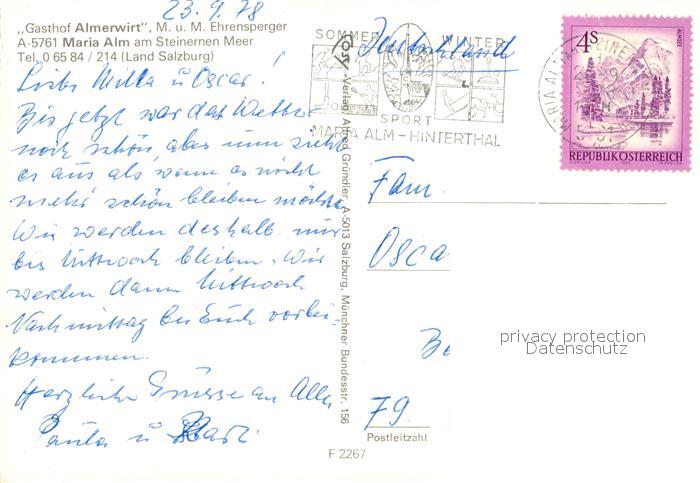 23.9.78
„Gasthof Almerwirt", M. u. M. Ehrensperger
A-5761 Maria Alm am Steinernen Meer
Tel. 0 65 84 / 214 (Land Salzburg)
Liebe Milla u Oscar!
Bis jetzt war das Wetter
noch schön, aber nun sieht
es aus als, wenn es nicht
mehr schön bleiben möchte
Wir werden deshalb nur
bis Mittwoch bleiben. Wir
werden dann Mittwoch
Nachmittag bei Euch vorbei-
kommen.
Herzliche Grüsse an Alle
Paula u
Verlag Alfred Gründler, A-5013 Salzburg, Münchner Bundesstr. 156
F 2267
SOMMER WINTER
SPORT
MARIA ALM - HINTERTHAL
Deutschland
4s
ALMSEE
REPUBLIK ÖSTERREICH
Fam.
Osca
Be
79.
Postleitzahl
privacy protection
Datenschutz